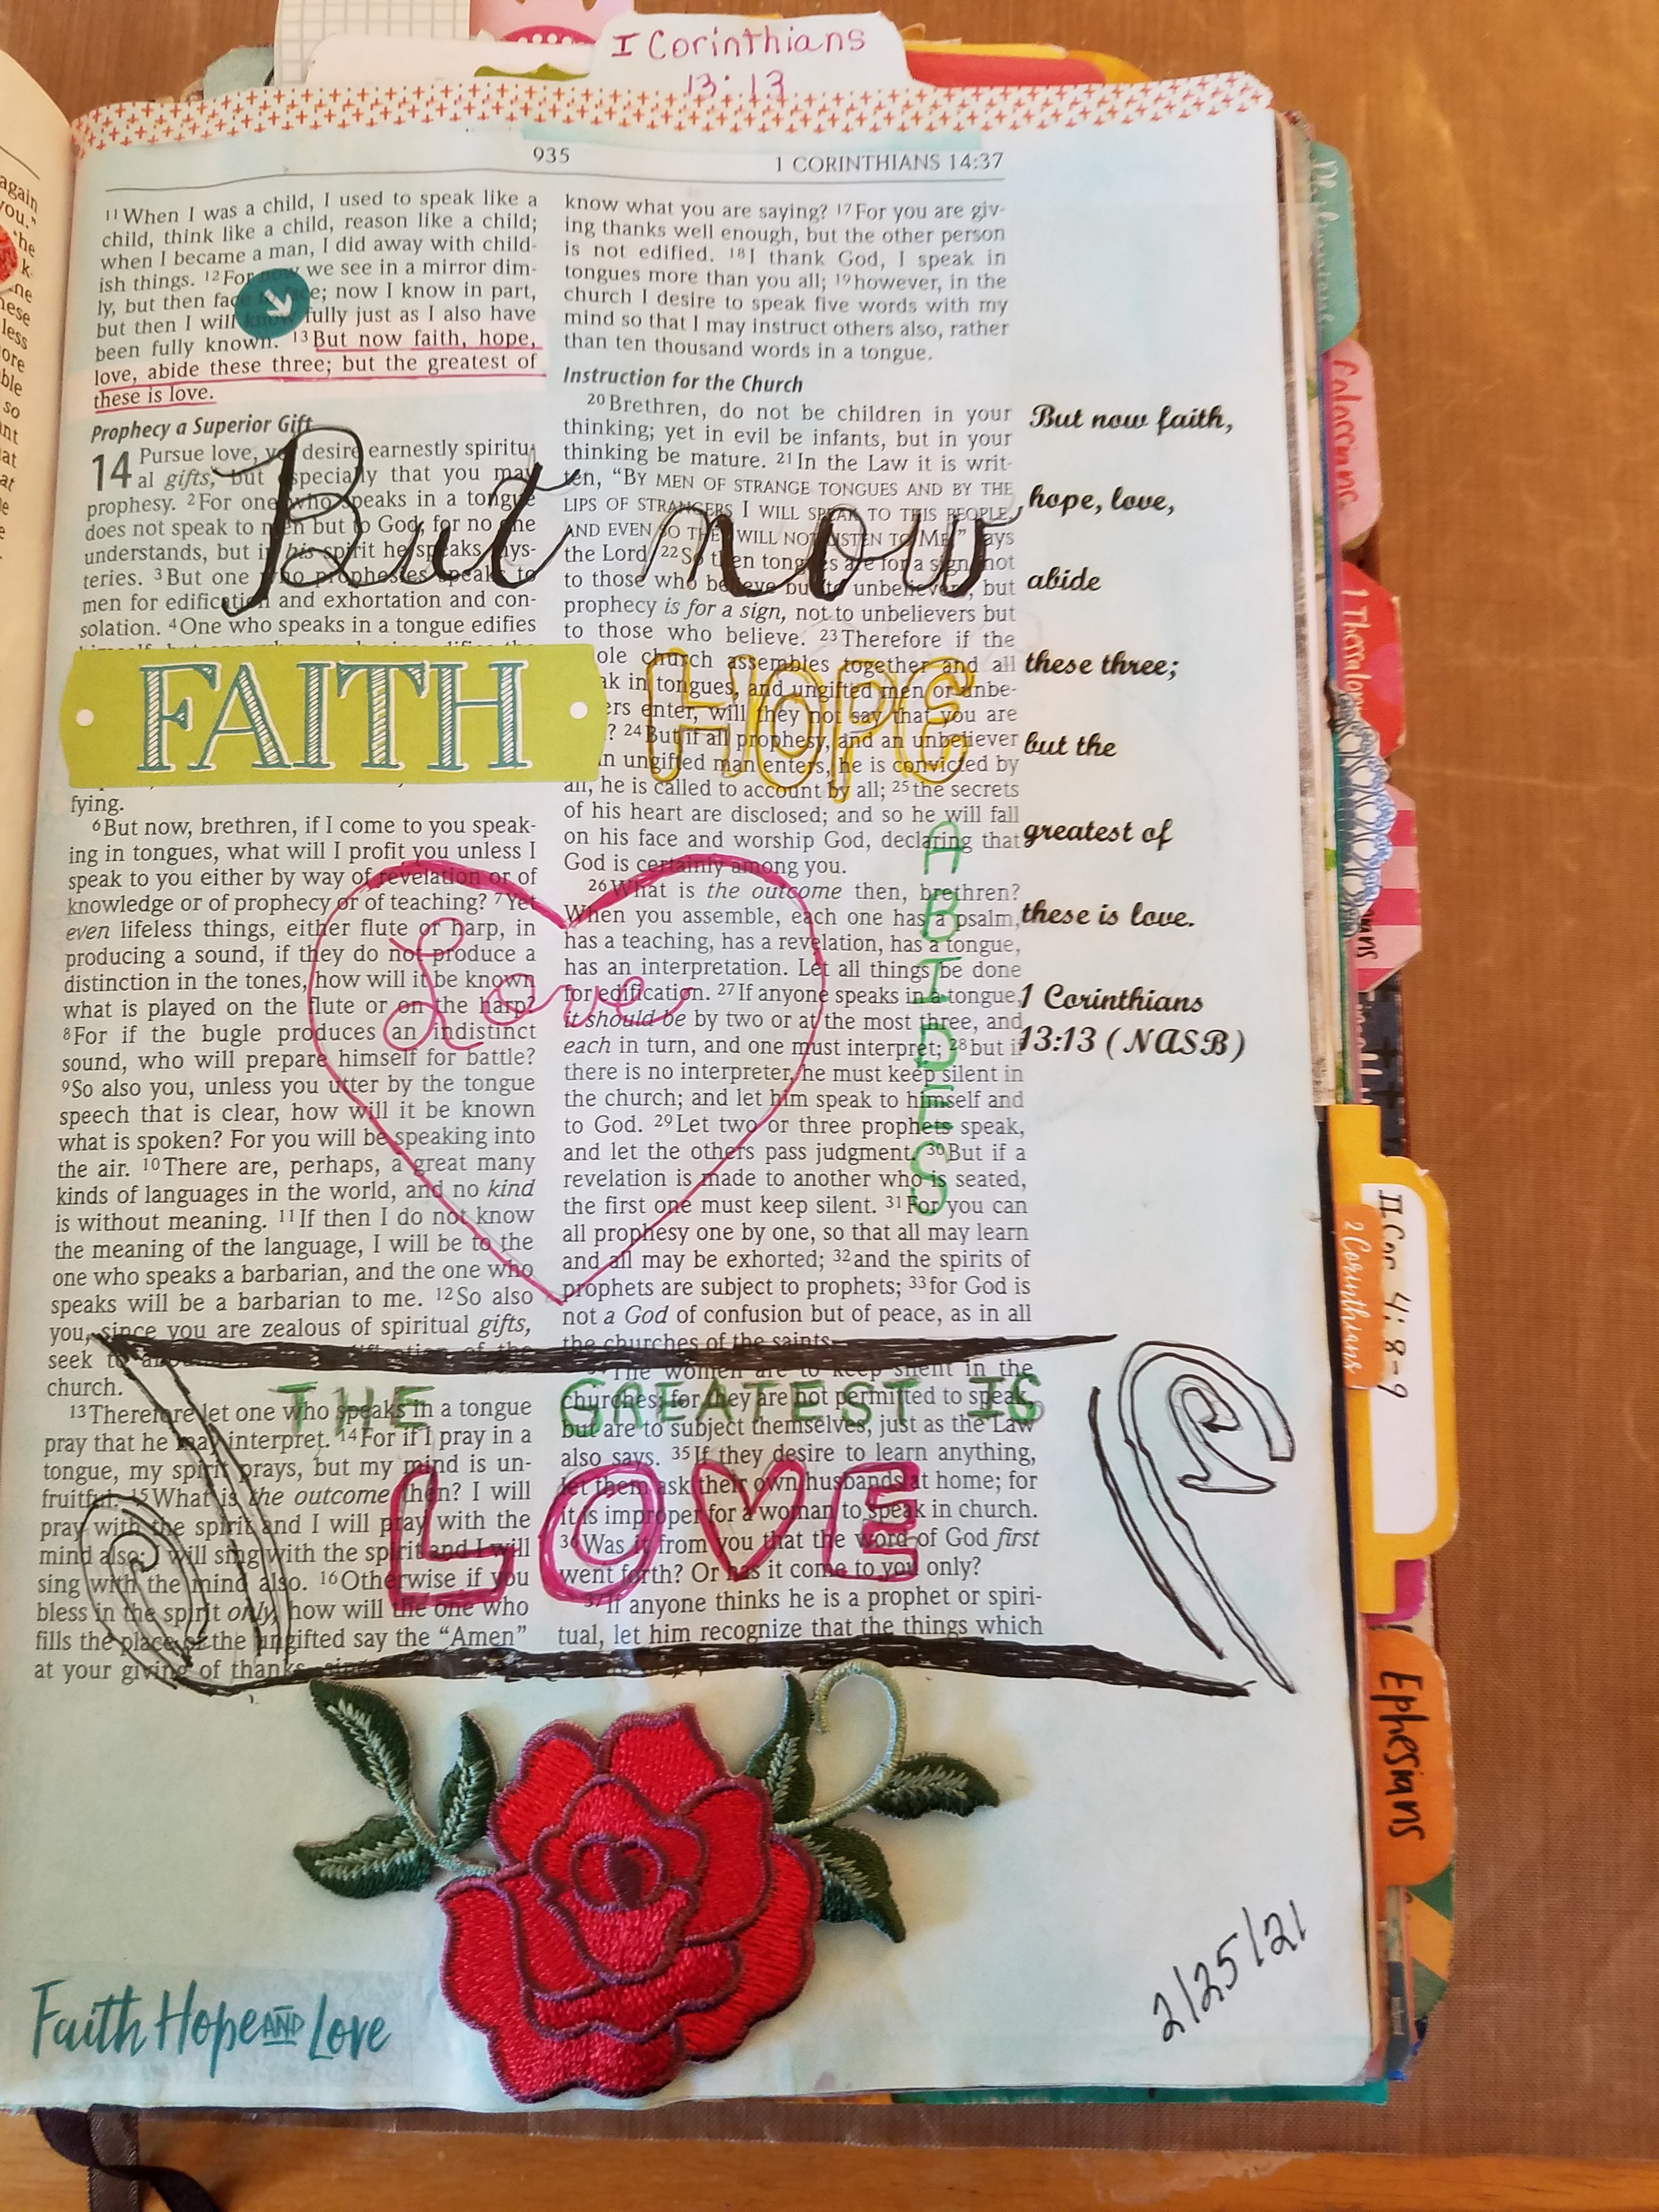 I Corinthians
13:13
935
1 CORINTHIANS 14:37
11 When I was a child, I used to speak like a
child, think like a child, reason like a child;
when I became a man, I did away with child-
ish things. 12 For now we see in a mirror dim-
ly, but then face to face; now I know in part,
but then I will know fully just as I also have
been fully known. 13 But now faith, hope,
love, abide these three; but the greatest of
these is love.
Prophecy a Superior Gift
14 Pursue love, yet desire earnestly spiritu-
al gifts, but especially that you may
prophesy. 2 For one who speaks in a tongue
does not speak to men but to God; for no one
understands, but in his spirit he speaks mys-
teries. 3 But one who prophesies speaks to
men for edification and exhortation and con-
solation. 4 One who speaks in a tongue edifies
fying.
6 But now, brethren, if I come to you speak-
ing in tongues, what will I profit you unless I
speak to you either by way of revelation or of
knowledge or of prophecy or of teaching? 7 Yet
even lifeless things, either flute or harp, in
producing a sound, if they do not produce a
distinction in the tones, how will it be known
what is played on the flute or on the harp?
8 For if the bugle produces an indistinct
sound, who will prepare himself for battle?
9 So also you, unless you utter by the tongue
speech that is clear, how will it be known
what is spoken? For you will be speaking into
the air. 10 There are, perhaps, a great many
kinds of languages in the world, and no kind
is without meaning. 11 If then I do not know
the meaning of the language, I will be to the
one who speaks a barbarian, and the one who
speaks will be a barbarian to me. 12 So also
you, since you are zealous of spiritual gifts,
seek to
church.
13 Therefore let one who speaks in a tongue
pray that he may interpret. 14 For if I pray in a
tongue, my spirit prays, but my mind is un-
fruitful. 15 What is the outcome then? I will
pray with the spirit and I will pray with the
mind also; I will sing with the spirit and I will
sing with the mind also. 16 Otherwise if you
bless in the spirit only, how will the one who
fills the place of the ungifted say the “Amen”
at your giving of thanks
know what you are saying? 17 For you are giv-
ing thanks well enough, but the other person
is not edified. 18 I thank God, I speak in
tongues more than you all; 19 however, in the
church I desire to speak five words with my
mind so that I may instruct others also, rather
than ten thousand words in a tongue.
Instruction for the Church
20 Brethren, do not be children in your
thinking; yet in evil be infants, but in your
thinking be mature. 21 In the Law it is writ-
ten, “BY MEN OF STRANGE TONGUES AND BY THE
LIPS OF STRANGERS I WILL SPEAK TO THIS PEOPLE,
AND EVEN SO THEY WILL NOT LISTEN TO ME,” says
the Lord. 22 So then tongues are for a sign, not
to those who believe but to unbelievers; but
prophecy is for a sign, not to unbelievers but
to those who believe. 23 Therefore if the
ole church assembles together and all
ak in tongues, and ungifted men or unbe-
ers enter, will they not say that you are
? 24 But if all prophesy, and an unbeliever
n ungifted man enters, he is convicted by
all, he is called to account by all; 25 the secrets
of his heart are disclosed; and so he will fall
on his face and worship God, declaring that
God is certainly among you.
26 What is the outcome then, brethren?
When you assemble, each one has a psalm,
has a teaching, has a revelation, has a tongue,
has an interpretation. Let all things be done
for edification. 27 If anyone speaks in a tongue,
it should be by two or at the most three, and
each in turn, and one must interpret; 28 but if
there is no interpreter, he must keep silent in
the church; and let him speak to himself and
to God. 29 Let two or three prophets speak,
and let the others pass judgment. 30 But if a
revelation is made to another who is seated,
the first one must keep silent. 31 For you can
all prophesy one by one, so that all may learn
and all may be exhorted; 32 and the spirits of
prophets are subject to prophets; 33 for God is
not a God of confusion but of peace, as in all
the churches of the saints.
The women are to keep silent in the
churches; for they are not permitted to speak,
but are to subject themselves, just as the Law
also says. 35 If they desire to learn anything,
let them ask their own husbands at home; for
it is improper for a woman to speak in church.
36 Was it from you that the word of God first
went forth? Or has it come to you only?
37 If anyone thinks he is a prophet or spiri-
tual, let him recognize that the things which
But now
FAITH
HOPE
Love
ABIDES
THE GREATEST IS
LOVE
But now faith,
hope, love,
abide
these three;
but the
greatest of
these is love.
1 Corinthians
13:13 (NASB)
Faith Hope AND Love
2/25/21
1 Thessalon
II Cor 4:8-9
2 Corinthians
Ephesians